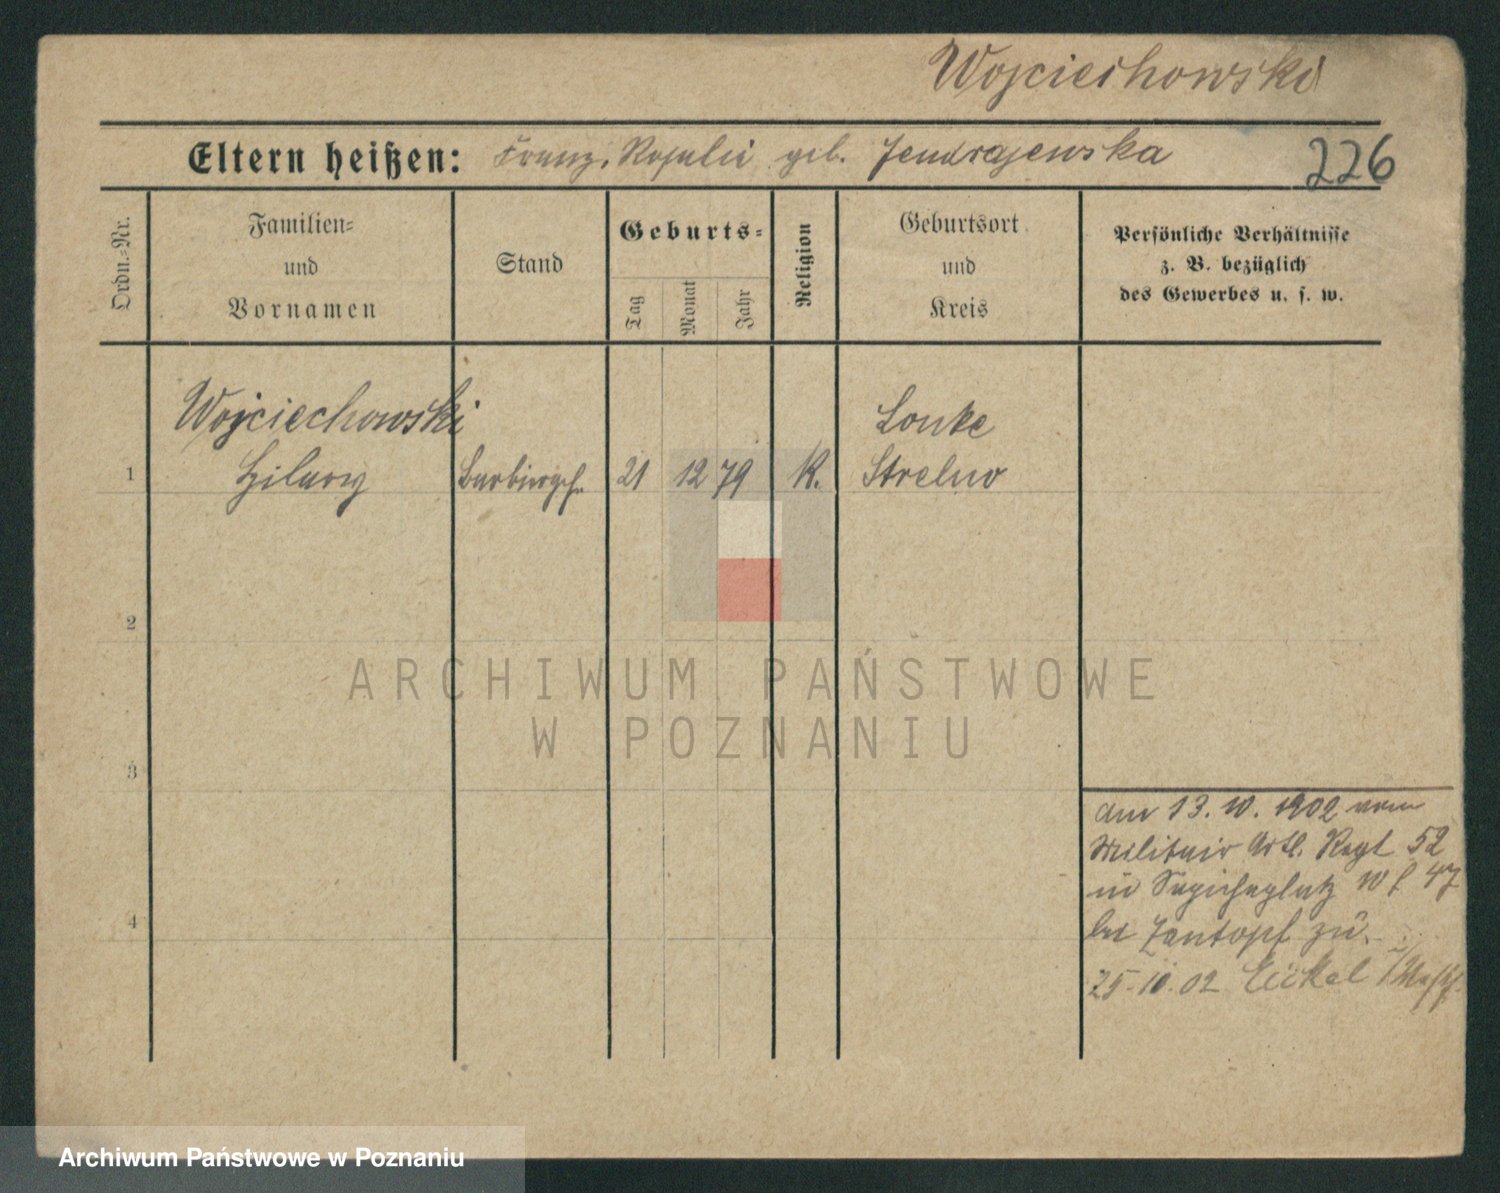 Wojciechowski
Eltern heißen: Franz, Rosalie geb. Jendrajewska
226
Ordn.-Nr.
Familien-
und
Vornamen
Stand
Geburts-
Tag
Monat
Jahr
Religion
Geburtsort
und
Kreis
Persönliche Verhältnisse
z. B. bezüglich
des Gewerbes u. s. w.
Wojciechowski Lonke
1 Hilary Barbiergeh. 21 12 79 K. Strelno
2
ARCHIWUM PAŃSTWOWE
W POZNANIU
3
am 13. 10. 1902 vom
Militair Artl. Regt 52
in Sapiehaplatz 10 f 47
bei Zantopf zu.
4
25. 10. 02 Eickel i/Westf.
Archiwum Państwowe w Poznaniu